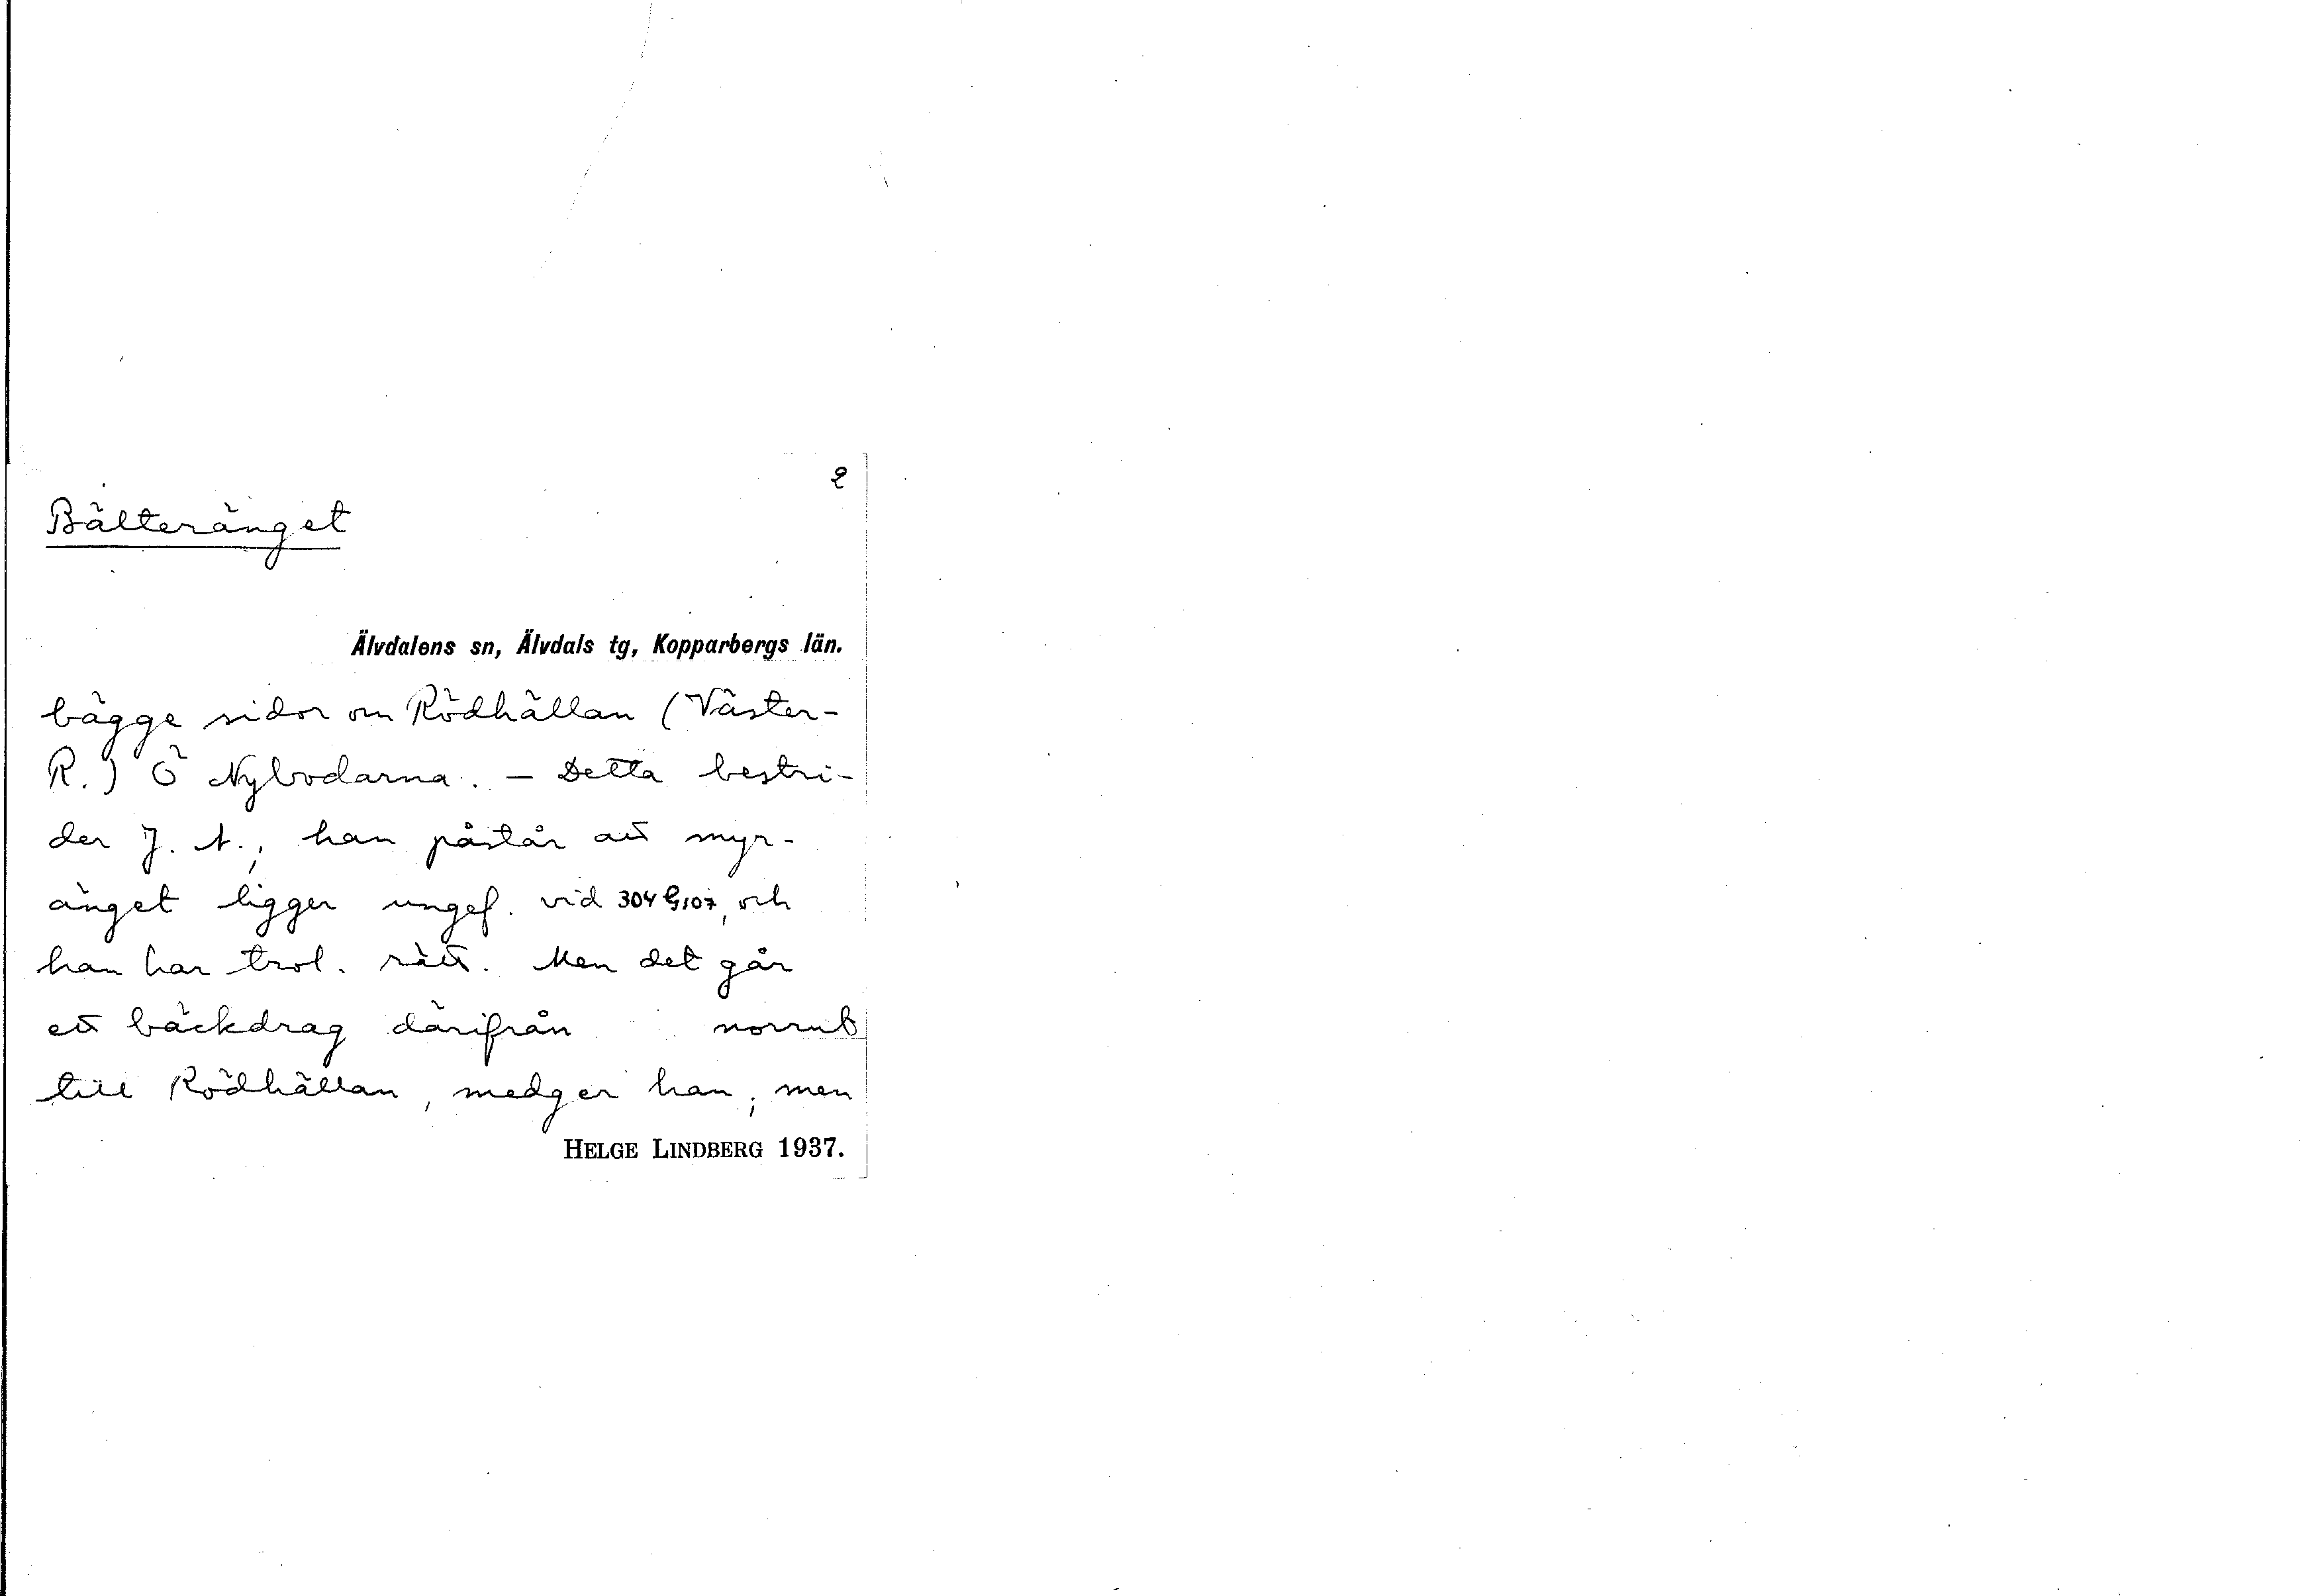 2
Bälteränget
Älvdalens sn, Älvdals tg, Kopparbergs län.
bägge sidor om Rödhällan (Väster-
R.) Ö Nybodarna. – Detta bestri-
der J. A., han påstår att myr-
änget ligger ungef. vid 304 G107, och
han har trol. rätt. Men det går
ett bäckdrag därifrån norrut
till Rödhällan, medger han; men
HELGE LINDBERG 1937.